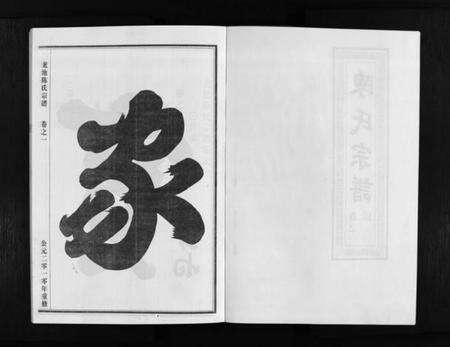 龙池陈氏宗谱 卷之一
家
公元二零一零年重修
陳氏宗譜